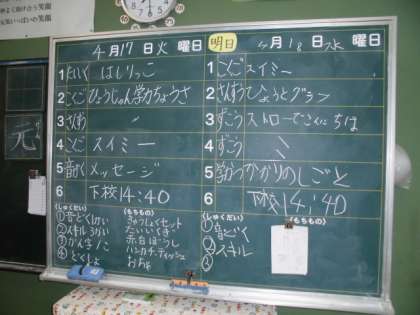 元気いっぱいの笑顔
元
4月17日火曜日
1 たいく はしりっこ
2 こくご ひょうじゅん学力ちょうさ
3 さんすう 〃
4 こくご スイミー
5 音がく メッセージ
6 下校14:40
(しゅくだい)
①音どくカード
②スキル
③かん字ノ
(もちもの)
きゅうしょくセット
たいいくぎ
赤白ぼうし
ハンカチ・ティッシュ
おちゃ
明日 4月18日水曜日
1 こくご スイミー
2 さんすう ひょうとグラフ
3 ずこう ストローでこんにちは
4 ずこう 〃
5 学かつ かかりのしごと
6 下校14:40
(しゅくだい)
(もちもの)
①音どく
②スキル
③